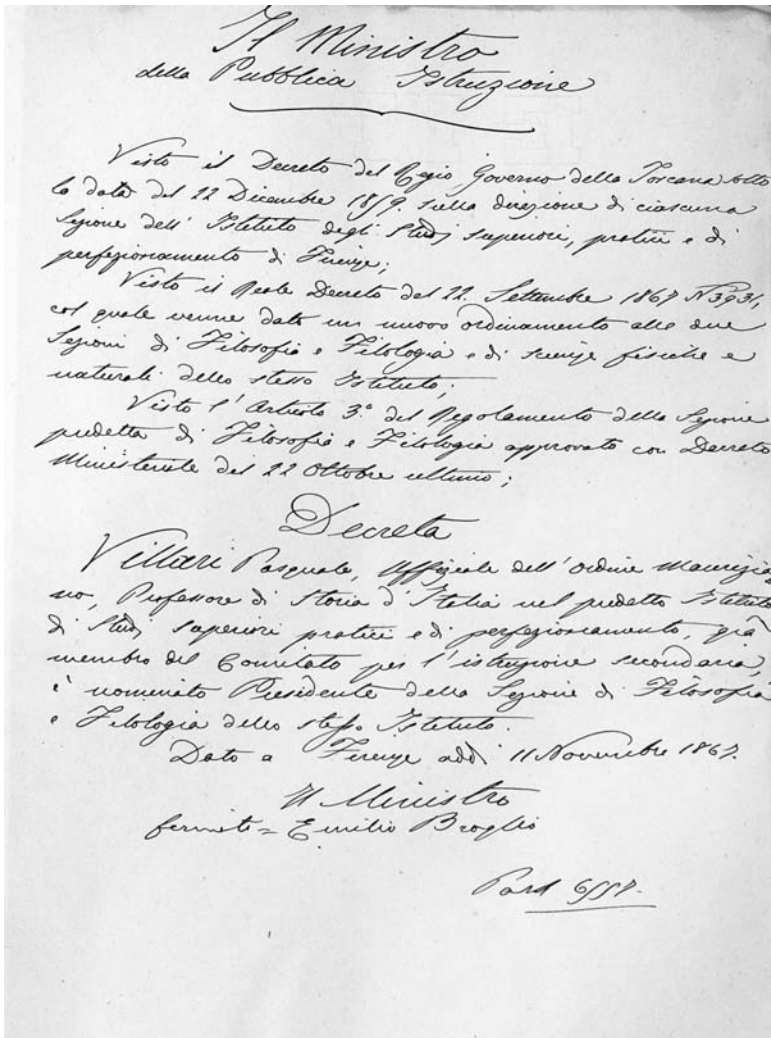 Il Ministro
della Pubblica Istruzione
Visto il Decreto del Regio Governo della Toscana sotto
la data del 22 Dicembre 1859. sulla direzione di ciascuna
Sezione dell' Istituto degli Studj superiori, pratici e di
perfezionamento di Firenze;
Visto il Reale Decreto del 22. Settembre 1867 N 3931,
col quale venne dato un nuovo ordinamento alle due
Sezioni di Filosofia e Filologia e di scienze fisiche e
naturali dello stesso Istituto;
Visto l' Articolo 3.° del Regolamento della Sezione
predetta di Filosofia e Filologia approvato con Decreto
Ministeriale del 22 Ottobre ultimo;
Decreta
Villari Pasquale, Uffiziale dell' Ordine Maurizia
no, Professore di Storia d' Italia nel predetto Istituto
di Studj superiori pratici e di perfezionamento, già
membro del Comitato per l' istruzione secondaria,
è nominato Presidente della Sezione di Filosofia
e Filologia dello stesso Istituto.
Dato a Firenze addì 11 Novembre 1867.
Il Ministro
firmato = Emilio Broglio